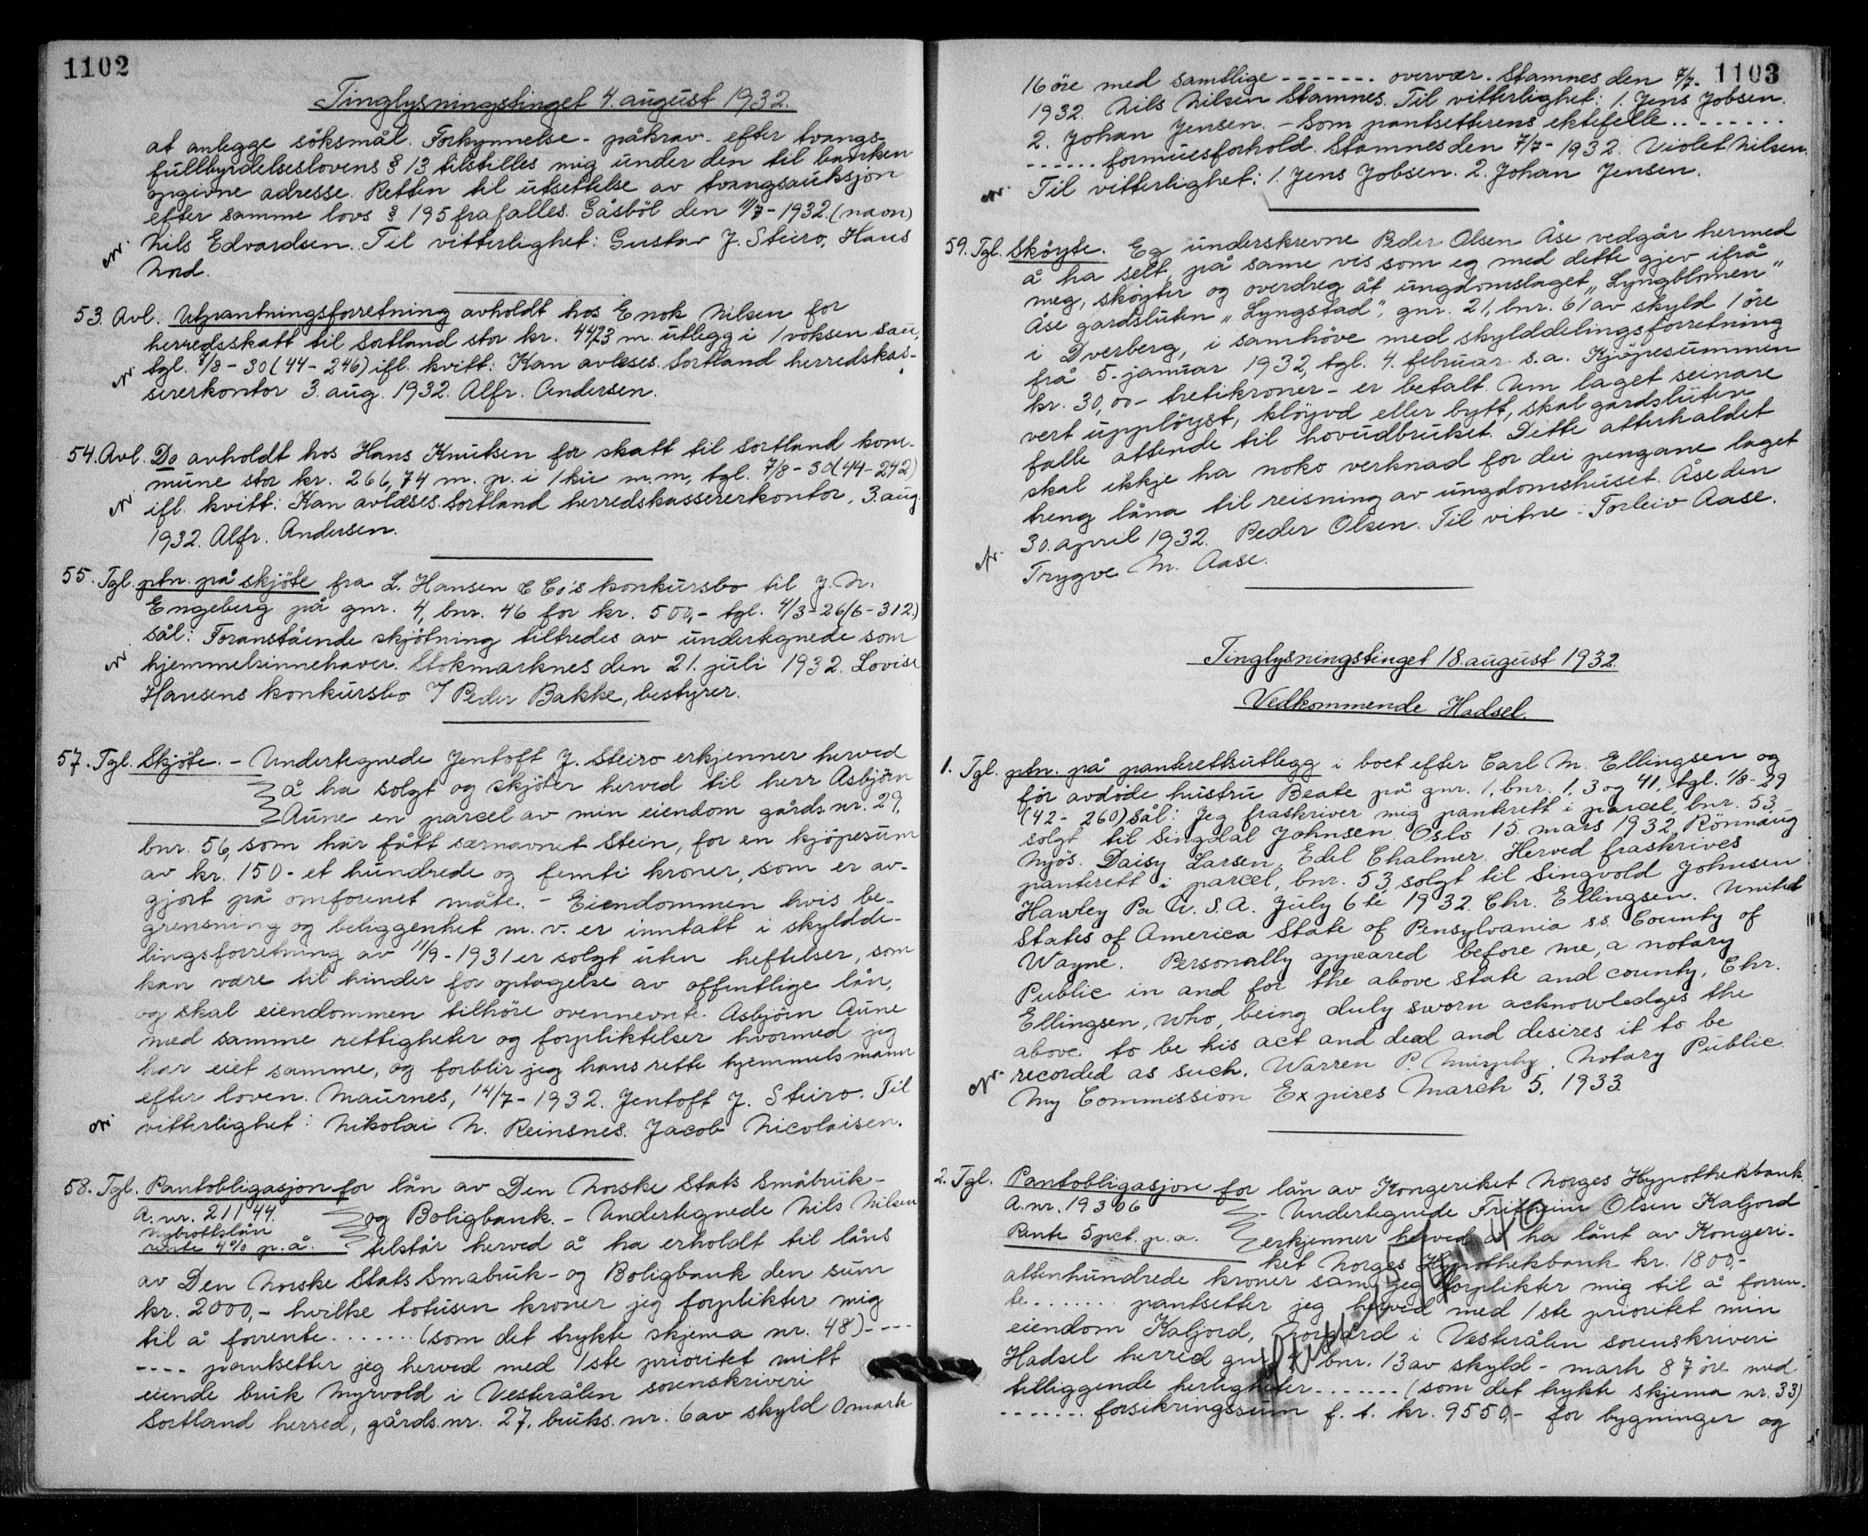 1102
Tinglysningstinget 4. august 1932.
at anlegge söksmål. Forkynnelse - påkrav - efter tvangs-
fullbyrdelseslovens § 13 tilstilles mig under den til banken
opgivne adresse. Retten til utsettelse av tvangsauksjon
efter samme lovs § 195 frafalles. Gåsböl den 11/7 - 1932. (navn)
Nils Edvardsen. Til vitterlighet: Gustav J. Steiro, Hans
Nord.
53. Avl. Utpantningsforretning avholdt hos Enok Nilsen for
herredsskatt til Sortland stor kr. 44,73 m. utlegg i 1 voksen sau,
tgl. 7/8 - 30 (44 - 246) ifl. kvitt: Kan avleses. Sortland herredskas-
sererkontor 3. aug. 1932. Alfr. Andersen.
54. Avl. Do avholdt hos Hans Knutsen for skatt til Sortland kom-
mune stor kr. 266,74 m. p. i 1 ku m.m, tgl. 7/8 - 30 (44 - 242)
ifl. kvitt: Kan avleses. Sortland herredskassererkontor, 3. aug.
1932. Alfr. Andersen.
55. Tgl. ptn. på skjöte fra L. Hansen & Co's konkursbo til J. N.
Engeberg på gnr. 4, bnr. 46 for kr. 500,- tgl. 4/3 - 26 (6 - 312)
sål: Foranstående skjötning tiltredes av undertegnede som
hjemmelsinnehaver. Stokmarknes den 21. juli 1932. Lovise
Hansens konkursbo / Peder Bakke, bestyrer.
57. Tgl. Skjöte. - Undertegnede Jentoft J. Steiro erkjenner herved
å ha solgt og skjöter herved til herr Asbjörn
Aune en parcel av min eiendom gårds nr. 29,
bnr. 56, som har fått særnavnet Stein, for en kjöpesum
av kr. 150 - et hundrede og femti kroner, som er av-
gjort på omforenet måte. - Eiendommen hvis be-
grensning og beliggenhet m. v. er inntatt i skyldde-
lingsforretning av 11/9 - 1931 er solgt uten heftelser, som
kan være til hinder for optagelse av offentlige lån,
og skal eiendommen tilhöre ovennevnte Asbjörn Aune
med samme rettigheter og forpliktelser hvormed jeg
har eiet samme, og forblir jeg hans rette hjemmelsmann
efter loven. Maurnes, 14/7 - 1932. Jentoft J. Steiro. Til
vitterlighet: Nikolai N. Reinsnes. Jacob Nicolaisen.
58. Tgl. Pantobligasjon for lån av Den Norske Stats Småbruk-
A. nr. 21144. og Boligbank. - Undertegnede Nils Nilsen
Nybrottslån
rente 4% p. å. tilstår herved å ha erholdt til låns
av Den Norske Stats Småbruk - og Boligbank den sum
kr. 2000,- hvilke totusen kroner jeg forplikter mig
til å forrente ....... (som det trykte skjema nr. 48) - - - -
- - - - pantsetter jeg herved med 1ste prioritet mitt
eiende bruk Myrvold i Vesterålen sorenskriveri
Sortland herred, gårds. nr. 27, bruks. nr. 6 av skyld 0 mark
1103
16 öre med samtlige - - - - - - - overvær. Stamnes den 7/7.
1932. Nils Nilsen Stamnes. Til vitterlighet: 1. Jens Jobsen.
2. Johan Jensen. - Som pantsetterens ektefelle ........
...... formuesforhold. Stamnes den 7/7 - 1932. Violet Nilsen.
Til vitterlighet: 1. Jens Jobsen. 2. Johan Jensen.
59. Tgl. Sköyte. Eg underskrevne Peder Olsen Åse vedgår hermed
å ha selt, på same vis som eg med dette gjev ifrå
meg, sköyter og overdreg åt ungdomslaget „Lyngblomen"
Åse gardsluten „Lyngstad", gnr. 21, bnr. 61 av skyld 1 öre
i Dverberg, i samhöve med skylddelingsforretning
frå 5. januar 1932, tgl. 4. februar s. a. Kjöpesummen
kr. 30,00 - trettikroner - er betalt. Um laget seinare
vert upplöyst, klöyvd eller bytt, skal gardsluten
falle attende til hovudbruket. Dette atterhaldet
skal ikkje ha noko verknad for dei pengane laget
treng låna til reisning av ungdomshuset. Åse den
30. april 1932. Peder Olsen. Til vitne: Torleiv Aase.
Trygve M. Aase.
Tinglysningstinget 18. august 1932.
Vedkommende Hadsel.
1. Tgl. ptn. på panterettsutlegg i boet efter Carl M. Ellingsen og
för avdöde hustru Beate på gnr. 1, bnr. 1, 3 og 41, tgl. 1/8 - 29
(42 - 260) sål: Jeg fraskriver mig panterett i parcel, bnr. 53
solgt til Singdal Johnsen. Oslo 15. mars 1932. Rönnaug
Mjös. Daisy Larsen, Edel Chalmer. Herved fraskrives
panterett i parcel, bnr. 53, solgt til Singvold Johnsen
Hawley Pa U. S. A. July 6 te 1932. Chr. Ellingsen. United
States of America State of Pensylvania ss. County of
Wayne. Personally appeared before me, a notary
Public in and for the above state and county, Chr.
Ellingsen, who, being duly sworn acknowledges the
above to be his act and deed and desires it to be
recorded as such. Warren P. Murphy. Notary Public
My Commission Expires March 5. 1933.
2. Tgl. Pantobligasjon for lån av Kongeriket Norges Hypothekbank.
A. nr. 193606 - Undertegnede Fritheim Olsen Kaljord
Rente 5 pct. p. a. erkjenner herved å ha lånt av Kongeri-
ket Norges Hypothekbank kr. 1800,-
attenhundrede kroner som jeg forplikter mig til å forren-
te ........ pantsetter jeg herved med 1ste prioritet min
eiendom Kaljord, i Vesterålen sorenskriveri
Hadsel herred gnr. bnr. 13 av skyld - mark 87 öre med
tilliggende herligheter ....... (som det trykte skjema nr. 33)
- - - - - - - forsikringssum f. t. kr. 9550,- for bygninger og